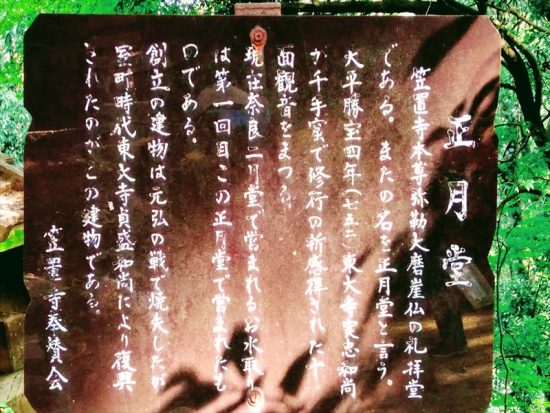 正月堂
笠置寺本尊弥勒大磨崖仏の礼拝堂
である。またの名を正月堂と言う。
天平勝宝四年(七五二)東大寺実忠和尚
が千手窟で修行の折感得された十一
面観音をまつる。
現在奈良二月堂で営まれるお水取り
は第一回目この正月堂で営まれたも
のである。
創立の建物は元弘の戦で焼失したが
室町時代東大寺貞盛和尚により復興
されたのがこの建物である。
笠置寺奉賛会